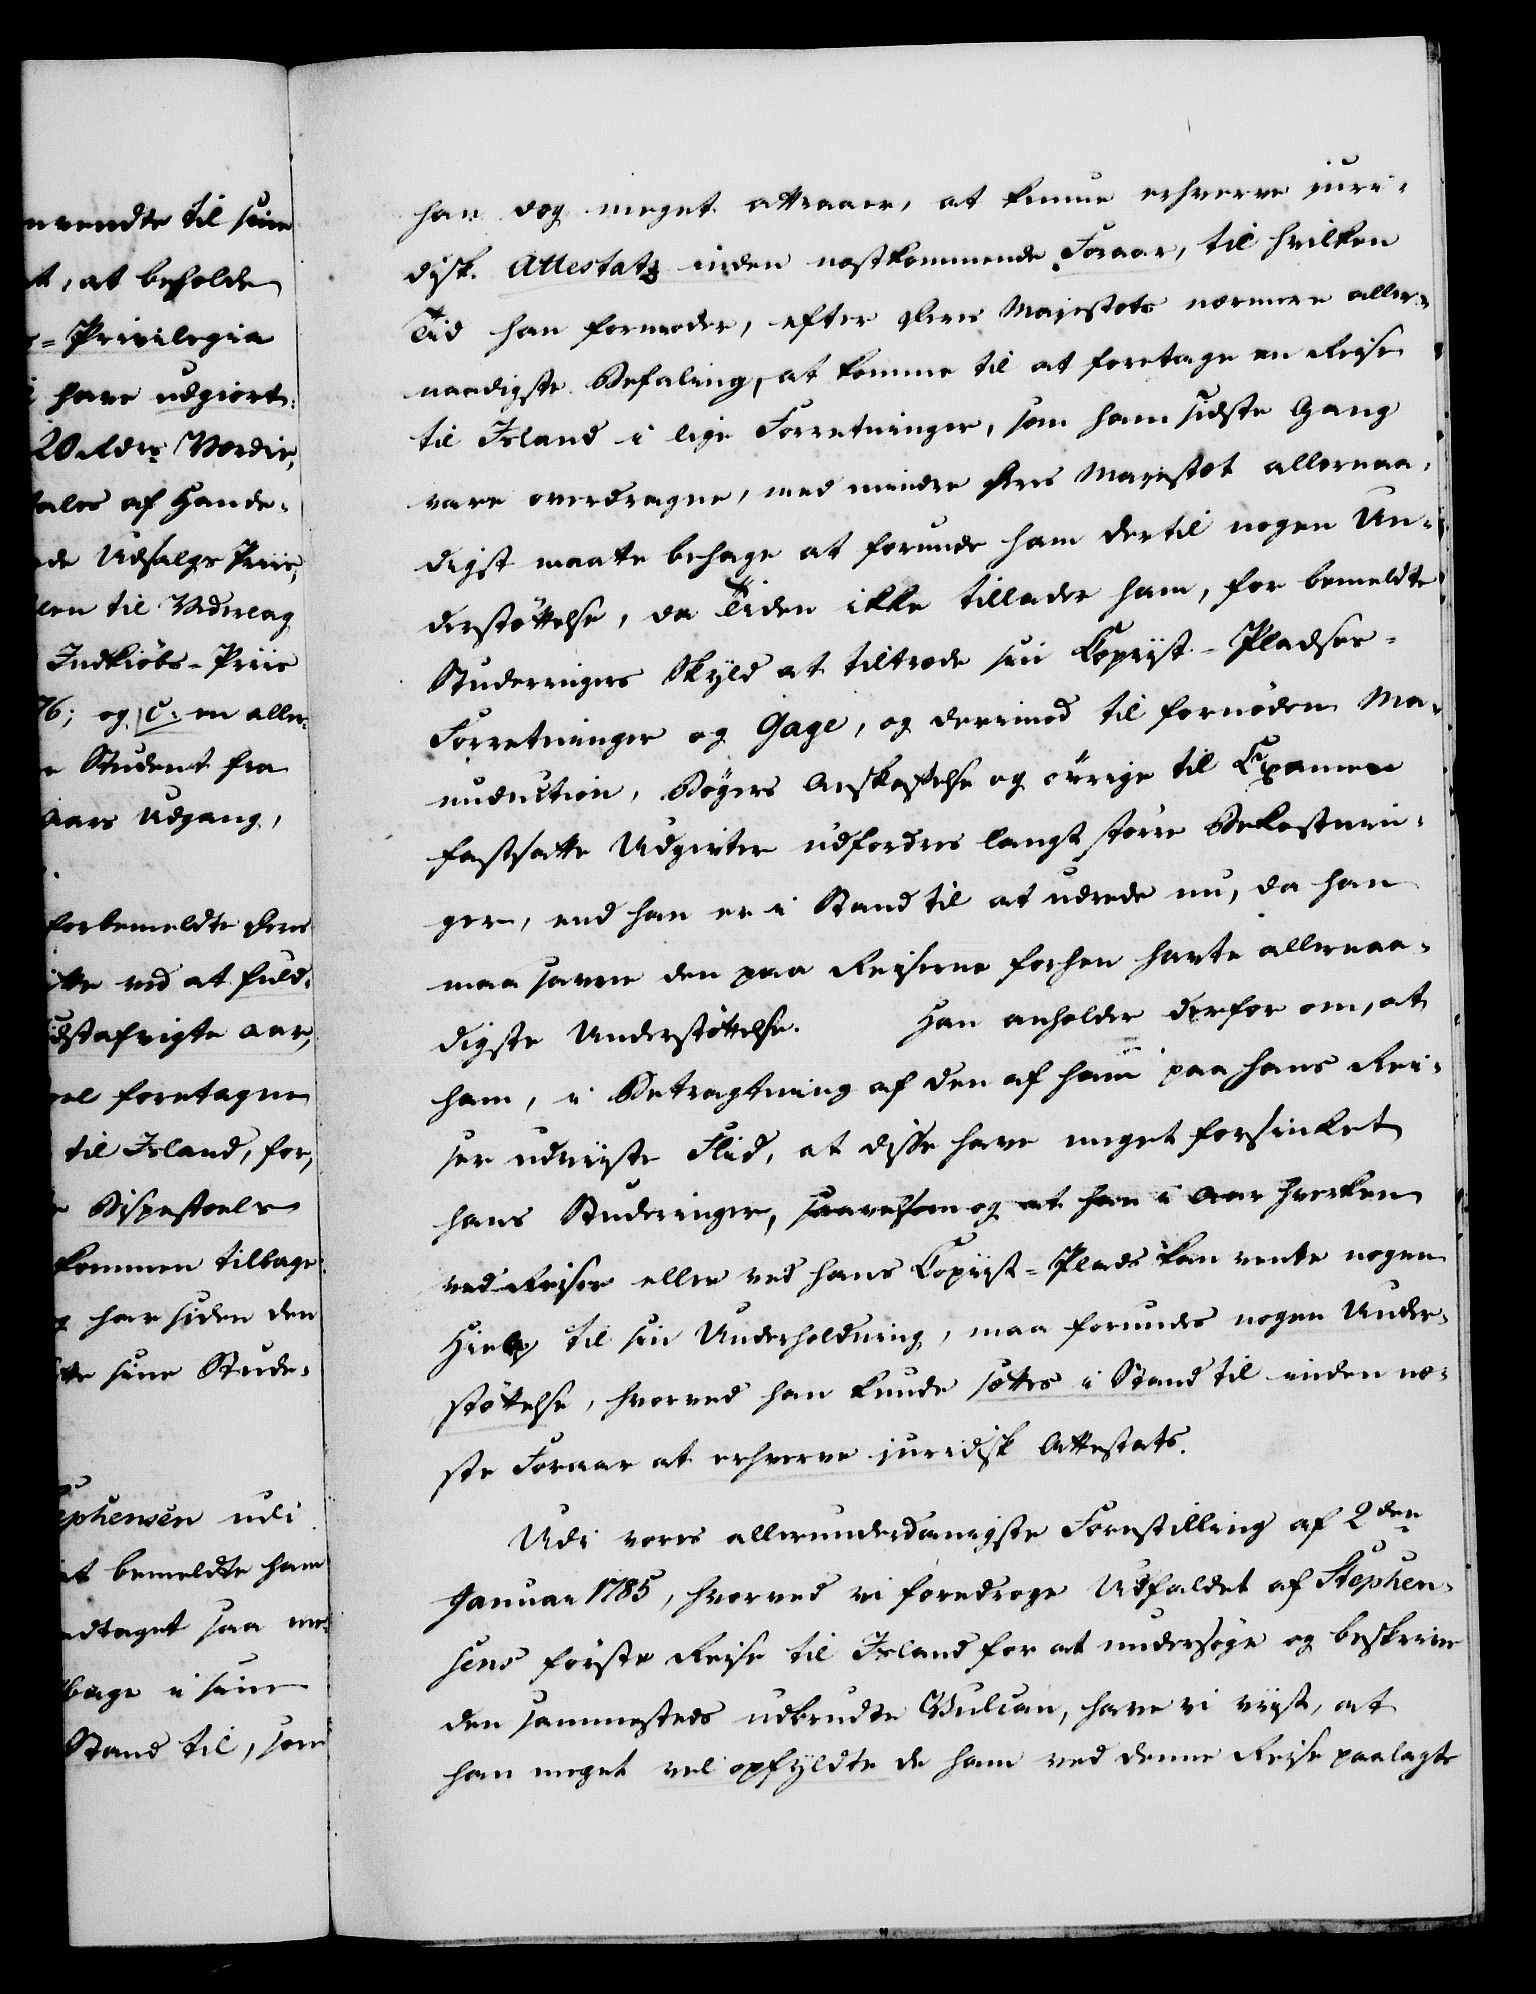 nvendte til sine
t, at beholde
= Privilegia
have udgiort
20 Rdrs Værdie,
tales af Hande-
de Udsalgs Priis,
len til Vederlag
Indkiøbs-Priis
76; og C: en aller-
Student fra
Aars Udgang,
forbemeldte Deres
tte ved at fuld-
idstafvigte Aar,
el foretagne
til Island, for,
Bispestoels
kommen tilbage
har siden den
tte sine Stude-
ephensen udi
at bemeldte ham
edtaget saa me-
bage i sine
Stand til, som
han dog meget attraaer, at kunne erhverve juri-
disk Attestatz inden næstkommende Foraar, til hvilken
Tid han formoder, efter Deres Majestæts nærmere aller-
naadigste Befaling, at komme til at foretage en Reise
til Island i lige Forretninger, som ham sidste Gang
vare overdragne, med mindre Deres Majestæt allernaa-
digst maatte behage at forunde ham dertil nogen Un-
derstøttelse, da Tiden ikke tillader ham, for bemeldte
Studeringers Skyld at tiltræde sin Copiist-Pladses-
Forretninger og Gage, og derimod til fornøden Ma-
nuduction, Bøgers Anskaffelse og øvrige til Examen
fastsatte Udgivter udfordres langt større Bekostnin-
ger, end han er i Stand til at udrede nu, da han
maa savne den paa Reiserne forhen havte allernaa-
digste Understøttelse. Han anholder derfor om, at
ham, i Betragtning af den af ham paa hans Rei-
ser udviiste Flid, at disse have meget forsinket
hans Studeringer, saavelsom og at han i Aar hverken
ved Reiser eller ved hans Copiist-Plads kan vente nogen
Hielp til sin Underholdning, maa forundes nogen Under-
støttelse, hvorved han kunde sættes i Stand til inden næ-
ste Foraar at erhverve juridisk Attestats.
Udi vores allerunderdanigste Forestilling af 2den
Januar 1785, hvorved vi foredroge Udfaldet af Stephen-
sens første Reise til Island for at undersøge og beskrive
den sammesteds udbrudte Vulcan, have vi viist, at
han meget vel opfyldte de ham ved denne Reise paalagte